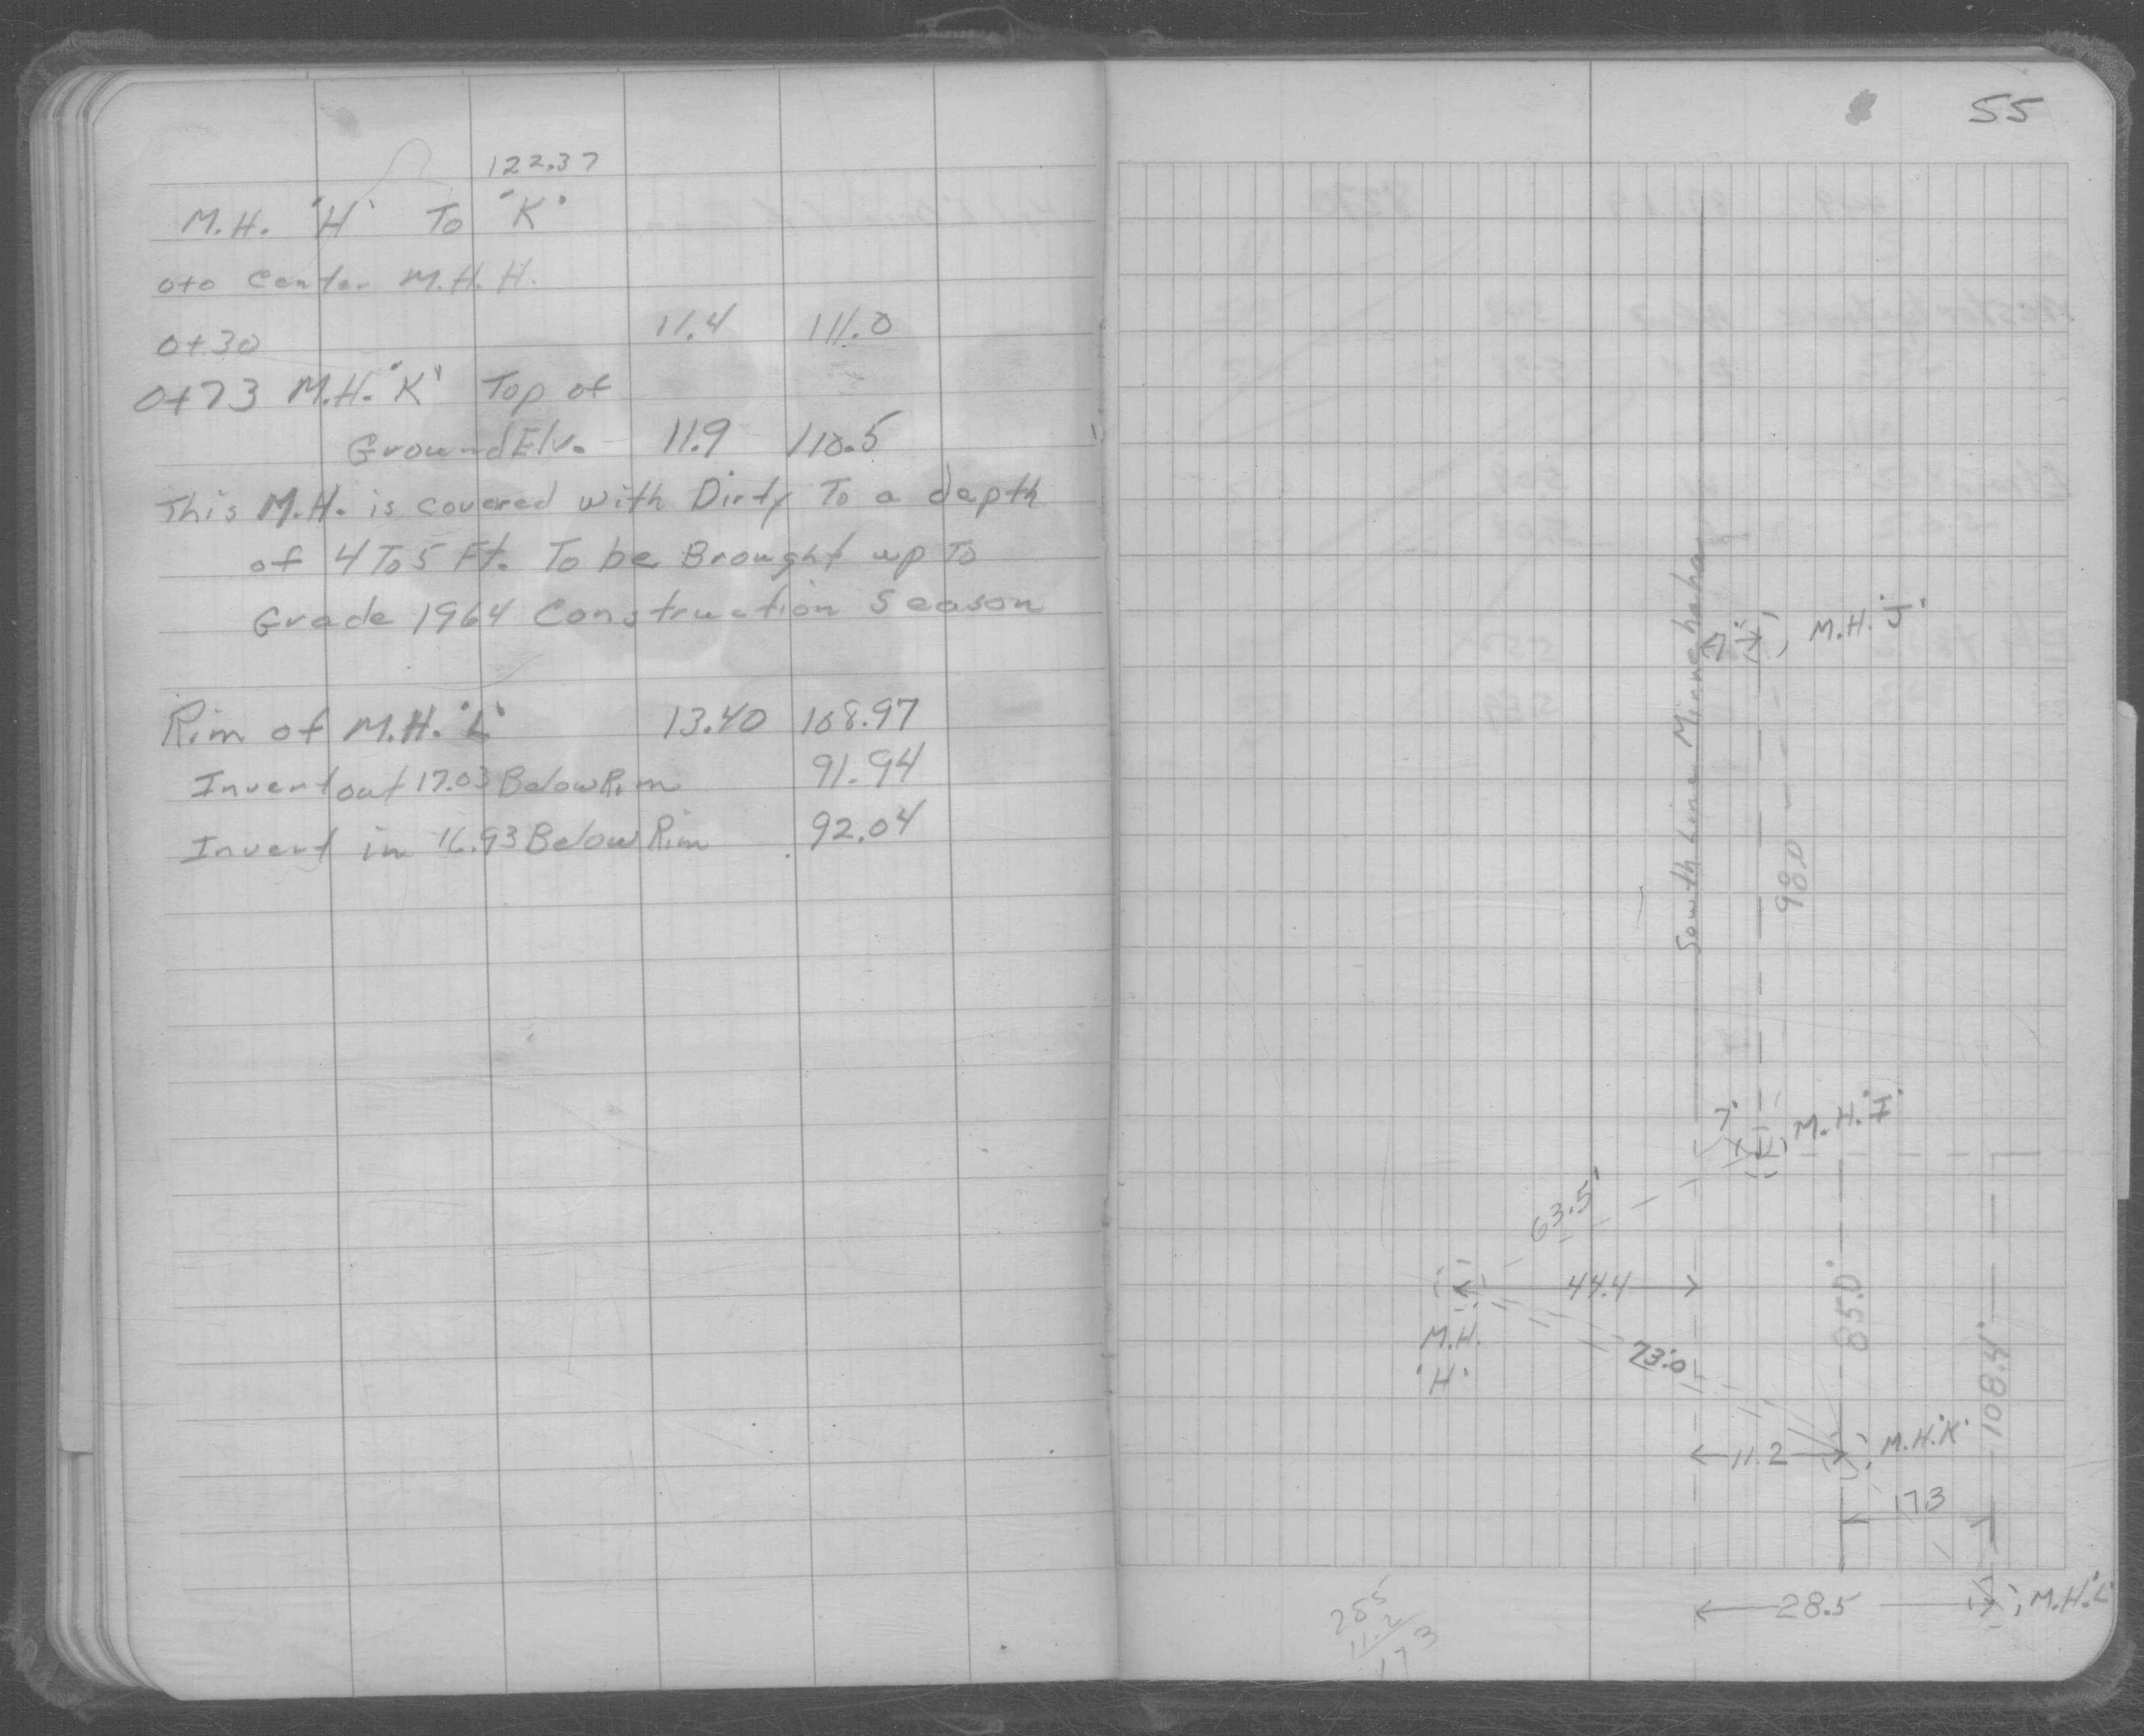 122.37
M.H. "H" To "K"
0+0 Center M.H. H.
0+30 11.4 111.0
0+73 M.H. "K" Top of
Ground Elv. 11.9 110.5
This M.H. is covered with Dirty To a depth
of 4 To 5 Ft. To be Brought up To
Grade 1964 Construction Season
Rim of M.H. "L" 13.40 108.97
Invert out 17.03 Below Rim 91.94
Invert in 16.93 Below Rim 92.04
55
South Line Minnehaha
7' M.H. "J"
98.0
7' M.H. "I"
63.5'
44.4
M.H.
"H"
73.0
85.0'
108.4'
11.2 M.H. "K"
17.3
28.5 M.H. "L"
28.5
11.2
17.3